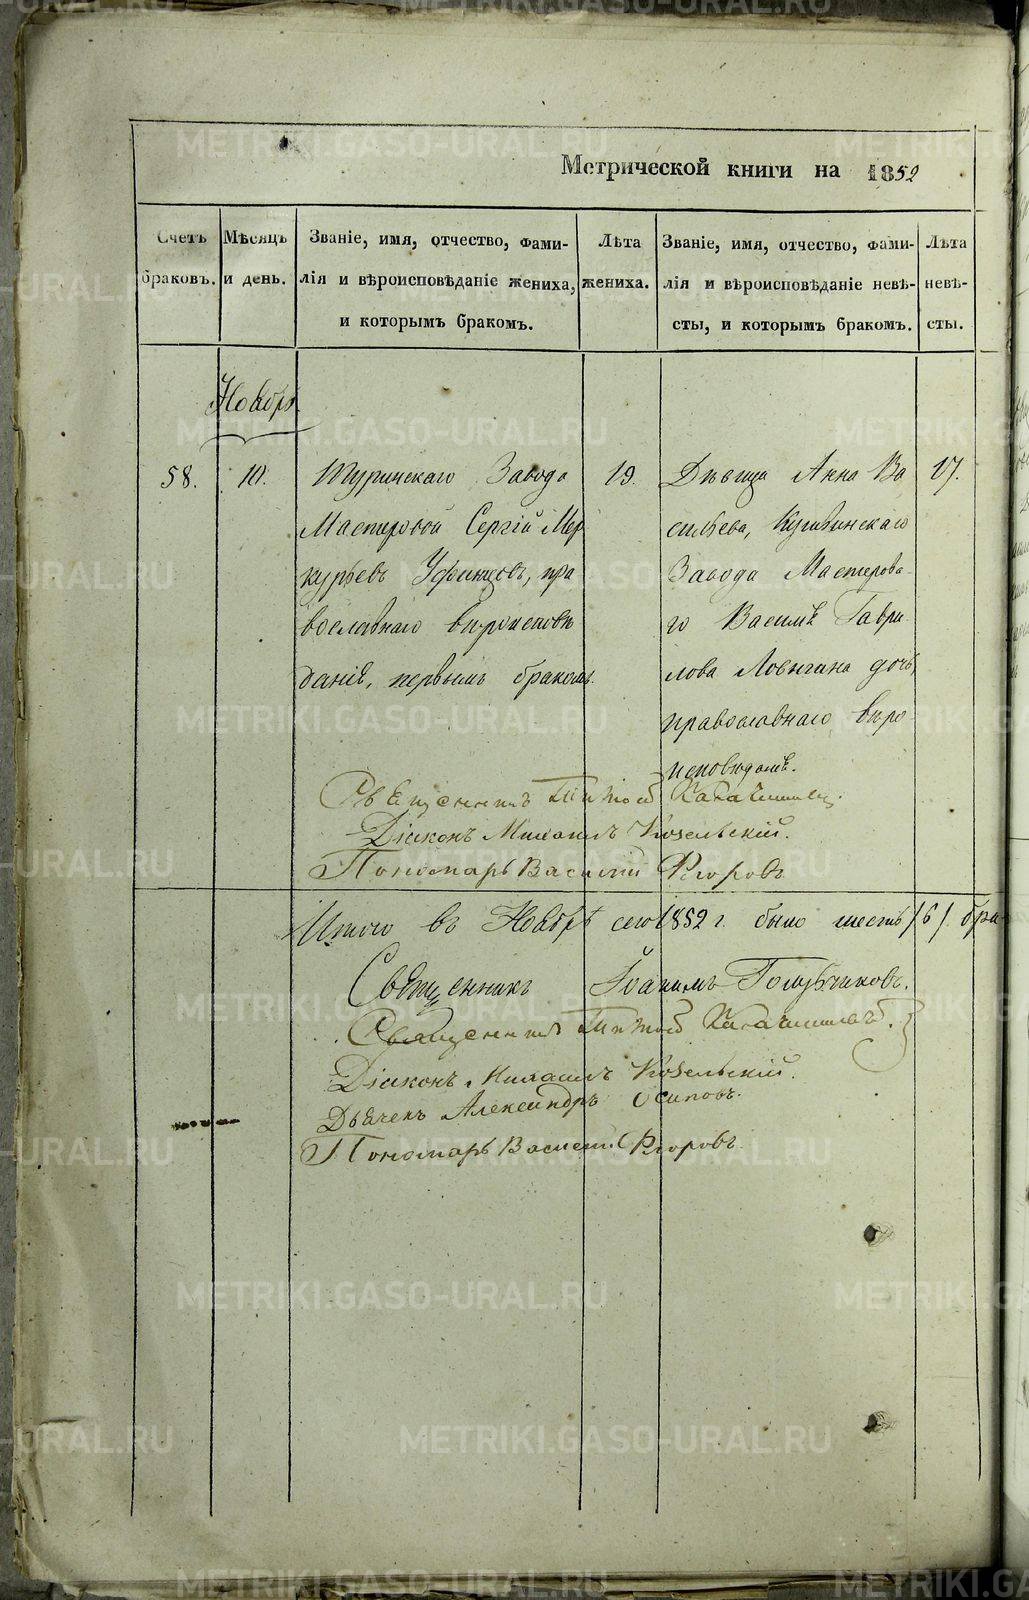 Метрической книги на 1852
Счетъ браковъ.
Мѣсяцъ и день.
Званіе, имя, отчество, фами-
лія и вѣроисповѣданіе жениха,
и которымъ бракомъ.
Лѣта
жениха.
Званіе, имя, отчество, фами-
лія и вѣроисповѣданіе невѣ-
сты, и которымъ бракомъ.
Лѣта
невѣ-
сты.
Ноябрь
58.
10.
Туринскаго Завода
Мастеровой Сергій Мер
курьевъ Уфинцовъ, пра
вославнаго вѣроисповѣ
данія, первымъ бракомъ.
19.
Дѣвица Анна Ва
сильева, Кушвинскаго
Завода Мастерова-
го Василія Гаври
лова Ловыгина дочь,
православнаго вѣро-
исповѣданія.
17.
Священникъ
Діаконъ Михаилъ Козельскій.
Пономарь Василій Егоровъ
Итого въ Ноябрѣ сего 1852 г. было шесть /6/ бра-
Священникъ Іоакимъ Голубчиковъ.
Священникъ
Діаконъ Михаилъ Козельскій.
Дьячекъ Александръ Осиповъ.
Пономарь Василій Егоровъ
METRIKI.GASO-URAL.RU